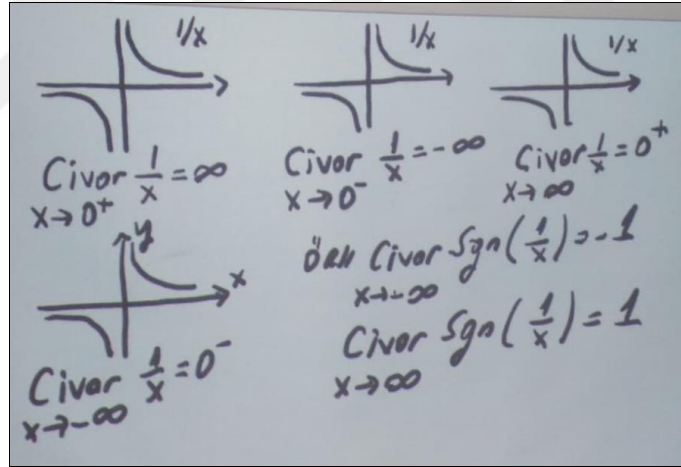 1/x
1/x
1/x
Civar 1/x = ∞
x→0⁺
Civar 1/x = -∞
x→0⁻
Civar 1/x = 0⁺
x→∞
y
x
Civar 1/x = 0⁻
x→-∞
Örn Civar Sgn(1/x) = -1
x→-∞
Civar Sgn(1/x) = 1
x→∞